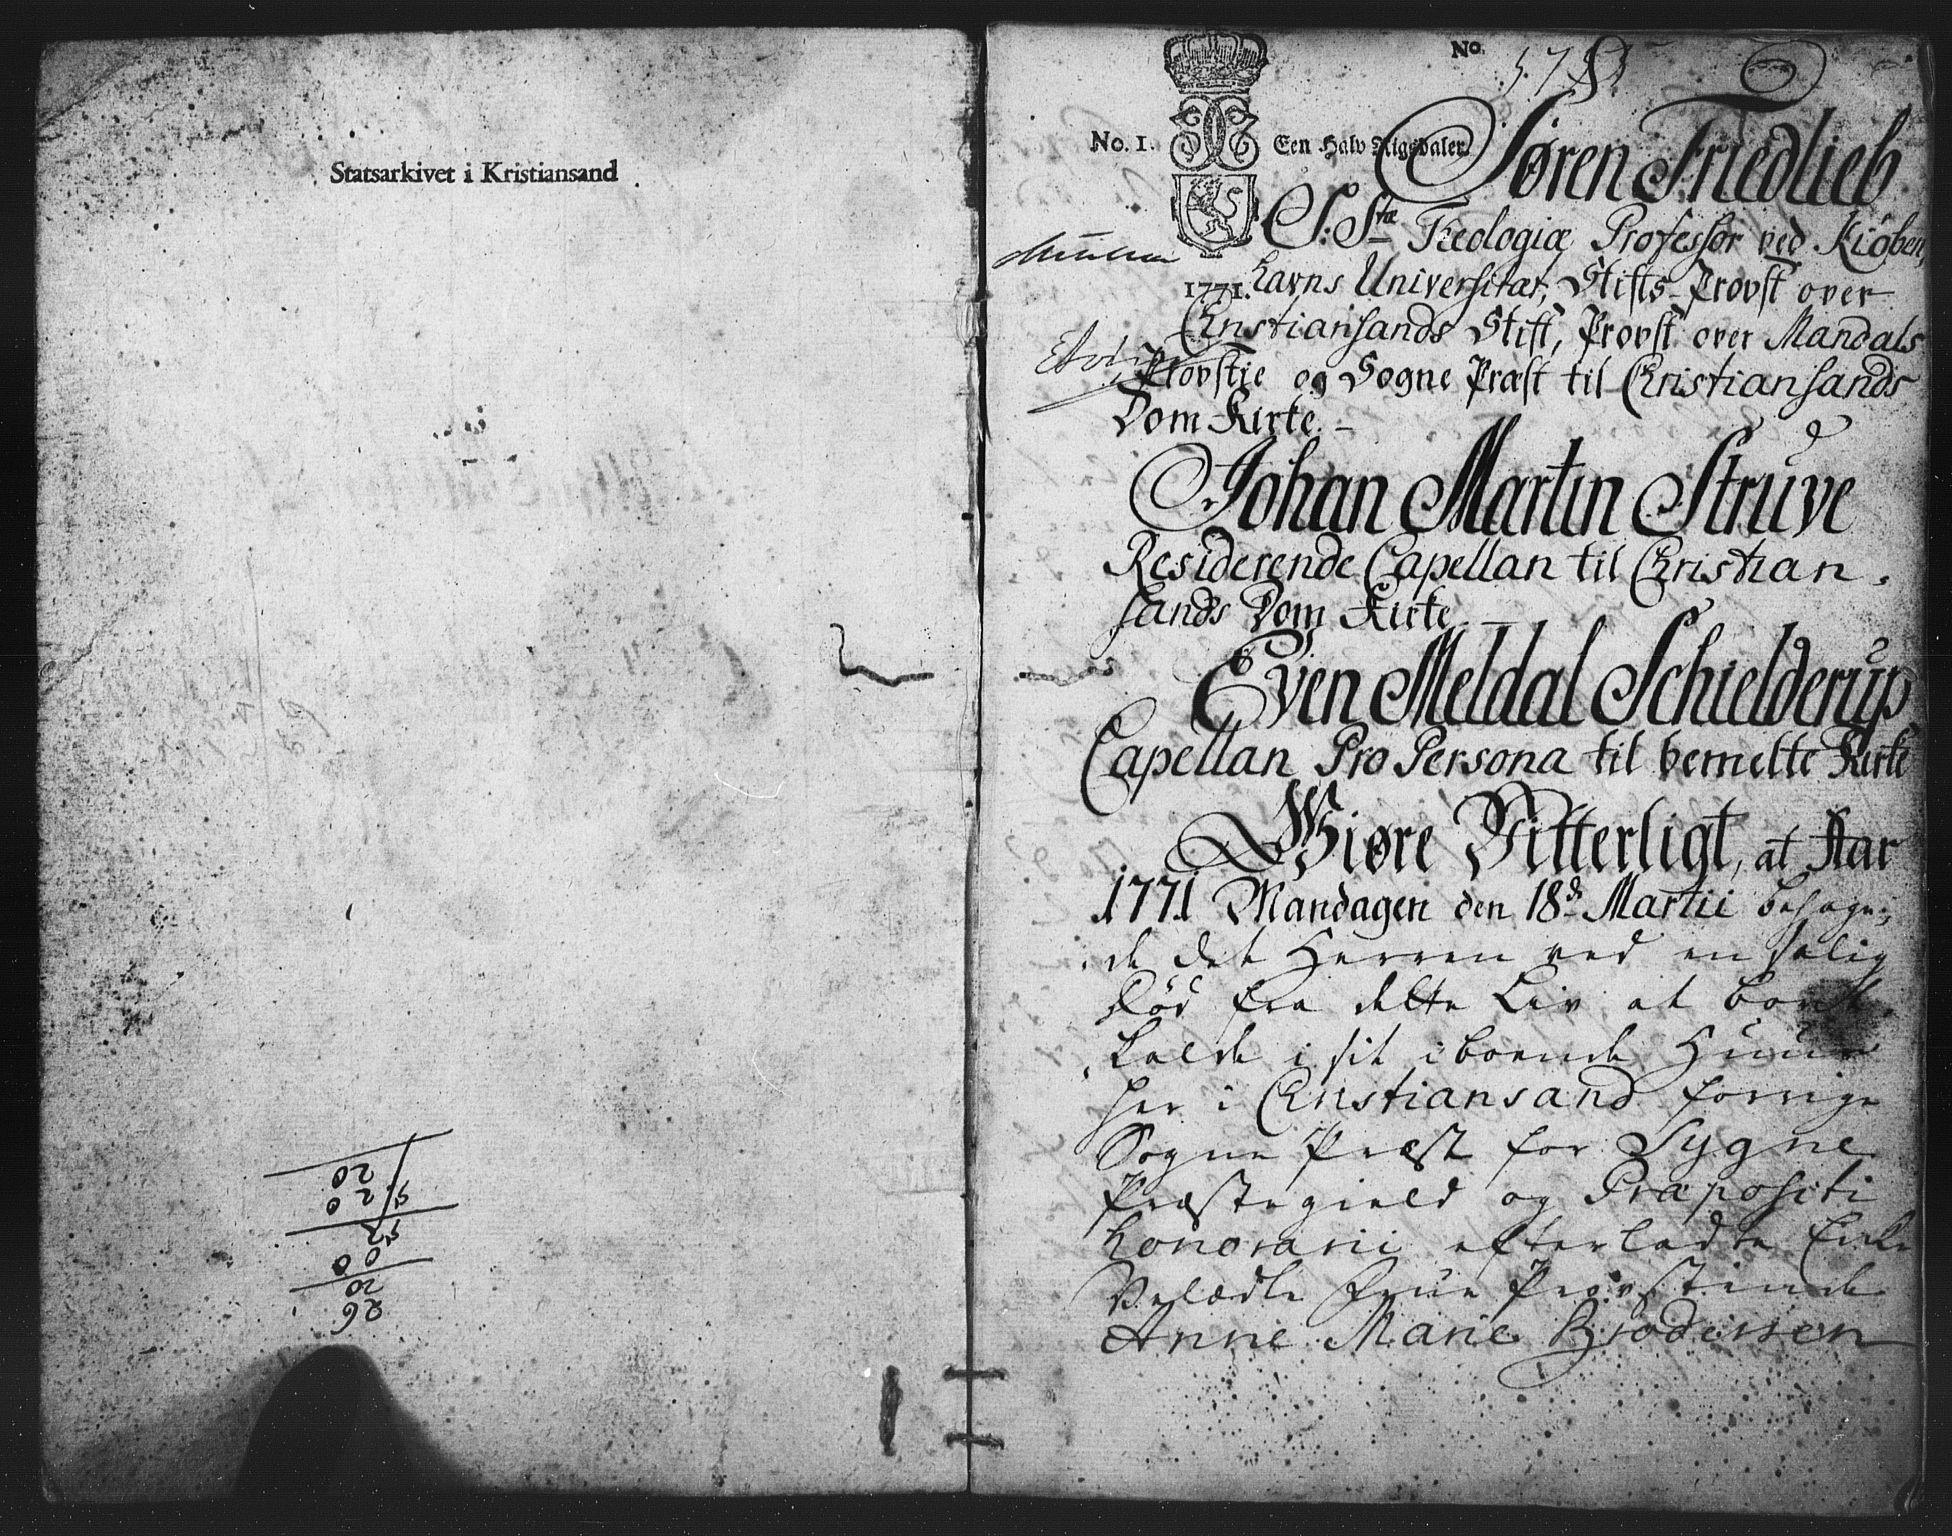 Statsarkivet i Kristiansand
26
20
00
52
5.20
20
No.
No. 1.
Een Halv Rigsdaler
1771.
Søren Friedlieb
S: Stæ Theologiæ Professor ved Kiøben,
havns Universitæt, Stifts-Provst over
Christiansands Stift, Provst over Mandals
Provstie og Sogne Præst til Christiansands
Dom Kirke. -
Johan Martin Struve
Residerende Capellan til Christian,
sands Dom Kirke. -
Even Meldal Schielderup
Capellan Pro Persona til bemelte Kirke
Giøre Vitterligt, at Aar
1771 Mandagen den 18de Martii behage,
de det Herren ved en salig
Død fra dette Liv at bort,
kalde i sit iboende Huus
her i Christiansand forrige
Sogne Præst for Sygne
Præstegield og Præpositi
honorarii efterladte Enke
Velædle Frue Provstinde
Anne Marie Brodersen